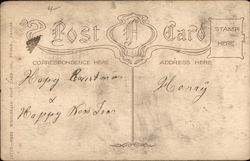 Post Card
STAMP
HERE
CORRESPONDENCE HERE
ADDRESS HERE
Hapy Christmas
Harry
&
Happy New Year